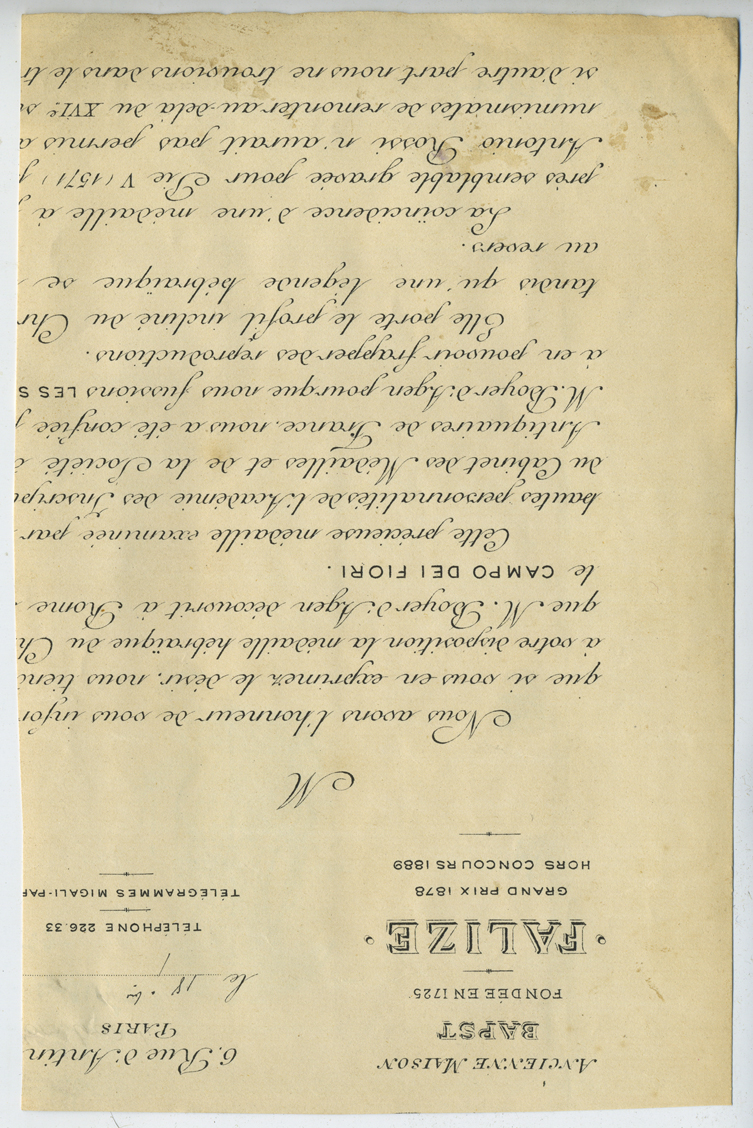 ANCIENNE MAISON
BAPST
FONDÉE EN 1725
· FALIZE ·
GRAND PRIX 1878
HORS CONCOURS 1889
6, Rue d'Antin
PARIS
le 18
TÉLÉPHONE 226.33
TÉLÉGRAMMES MIGALI-PAR
M
Nous avons l'honneur de vous infor
que si vous en exprimez le désir, nous tiend
à votre disposition la médaille hébraïque du Ch
que M. Boyer d'Agen découvrit à Rome
le CAMPO DEI FIORI.
Cette précieuse médaille examinée par
hautes personnalités de l'Académie des Inscrip
du Cabinet des Médailles et de la Société
Antiquaires de France, nous a été confiée
M. Boyer d'Agen pour que nous fussions LES S
à en pouvoir frapper des reproductions.
Elle porte le profil incliné du Chr
tandis qu'une légende hébraïque se
au revers.
La coïncidence d'une médaille à
près semblable gravée pour Pie V (1571)
Antonio Rossi n'aurait pas permis a
numismates de remonter au-delà du XVIe s
si d'autre part nous ne trouvions dans le tr